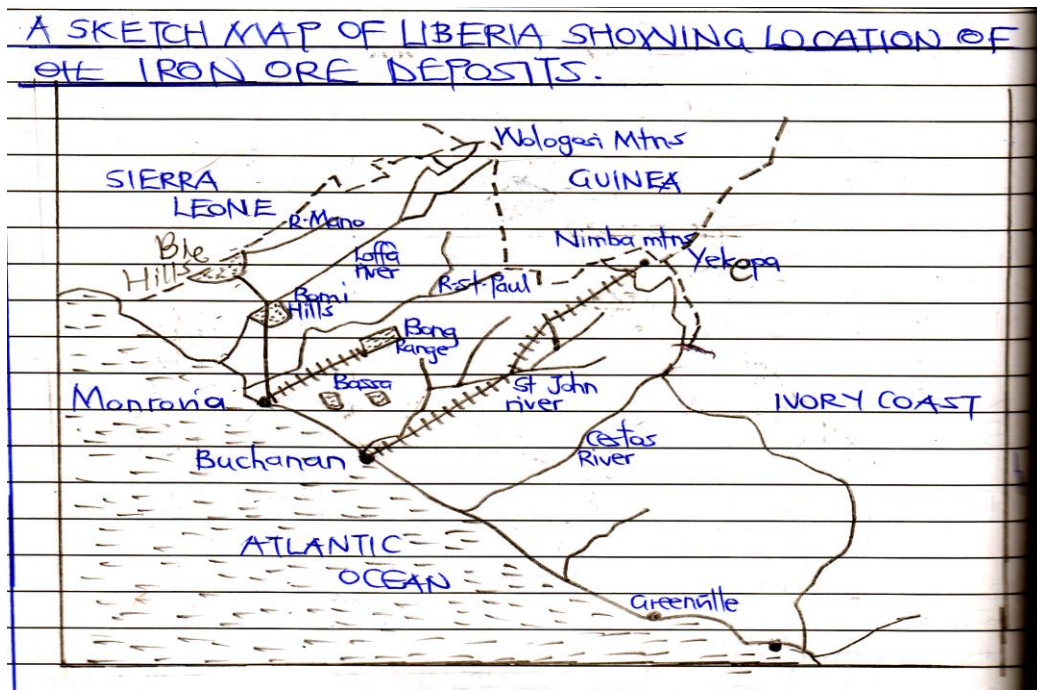 A SKETCH MAP OF LIBERIA SHOWING LOCATION OF
IRON ORE DEPOSITS.
Wologasi Mtns
SIERRA
LEONE
GUINEA
R-Mano
Bie
Hills
Loffa
river
Nimba mtns
Yekepa
R-St-Paul
Bomi
Hills
Bong
Range
Bassa
St John
river
Monrovia
IVORY COAST
Buchanan
Cestos
River
ATLANTIC
OCEAN
Greenville